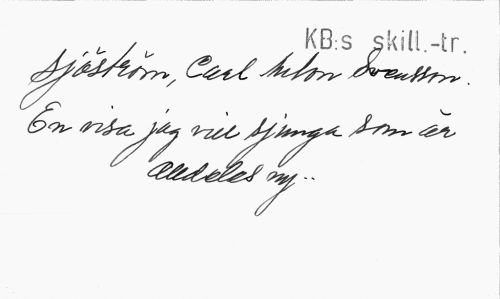 KB:s skill.-tr.
Sjöström, Carl Anton Svensson.
En visa jag vill sjunga som är
alldeles ny..